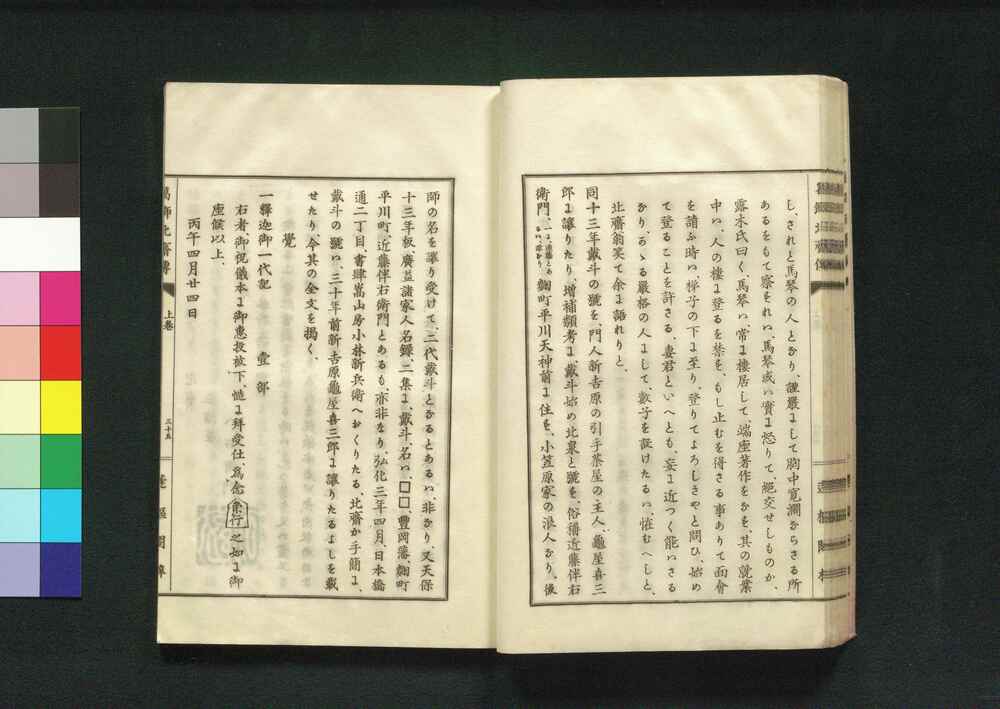 し、されど馬琴の人となり、謹嚴にして胸中寛濶ならざる所
あるをもて察をれハ、馬琴或ハ實に怒りて、絶交せしものか、
露木氏曰く、馬琴ハ、常に樓居して、端座著作をなを、其の就業
中ハ、人の樓に登るを禁を、もし止むを得さる事ありて面會
を請ふ時ハ、梯子の下に至り、登りてよろしきやと問ひ、始め
て登ることを許さる、妻君といへとも、妄に近つく能ハさる
なり、かゝる嚴格の人にして、數子を証けたるハ、恠むへしと、
北齋翁笑て余に語れりと、
同十三年戴斗の號を、門人新吉原の引手茶屋の主人、龜屋喜三
郎に讓りたり、增補類考に、戴斗始め北泉と號を、俗稱近藤伴右
衛門、麹町平川天神前に住を、小笠原家の浪人なり、後
師の名を讓り受けて、二代戴斗となるとあるハ、非なり、又天保
十三年板、廣益諸家人名錄、二集に、戴斗、名ハ、□□、豊岡藩、麹町
平川町、近藤伴右衛門とあるも、亦非なり、弘化三年四月、日本橋
通二丁目、書肆嵩山房小林新兵衛へおくりたる、北齋か手簡に、
戴斗の號ハ、三十年前新吉原龜屋喜三郎に讓りたるよしを載
せたり、今其の全文を掲く、
覺
一釋迦御一代記 壹部
右者、御祝儀本に御惠投被下、慥に拜受仕、爲念余行之如に御
座候以上、
丙午四月廿四日
葛飾北齋傳
上卷
三十五